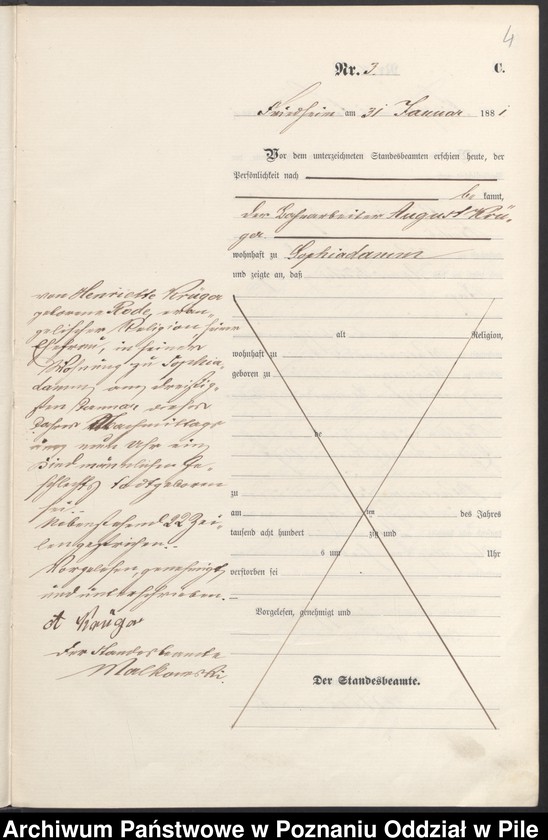 4
Nr. 3. C.
Friedheim am 31 Januar 1881
Vor dem unterzeichneten Standesbeamten erschien heute, der
Persönlichkeit nach
be kannt,
der Bahnarbeiter August Krü-
ger
wohnhaft zu Sophiadamm
und zeigte an, daß
von Henriette Krüger
geborene Rode, evan-
gelischer Religion seiner
Ehefrau, in seiner
Wohnung zu Sophia-
damm am dreißig-
sten Januar dieses
Jahres Nachmittags
um neun Uhr ein
Kind männlichen Ge-
schlechts todtgeboren
sei.
Nebenstehend 22 Zei-
len gestrichen.
Vorgelesen, genehmigt
und unterschrieben.
A Krüger
Der Standesbeamte
Malkowski.
alt Religion,
wohnhaft zu
geboren zu
de
zu
am ten des Jahres
tausend acht hundert zig und
s um Uhr
verstorben sei
Vorgelesen, genehmigt und
Der Standesbeamte.
Archiwum Państwowe w Poznaniu Oddział w Pile